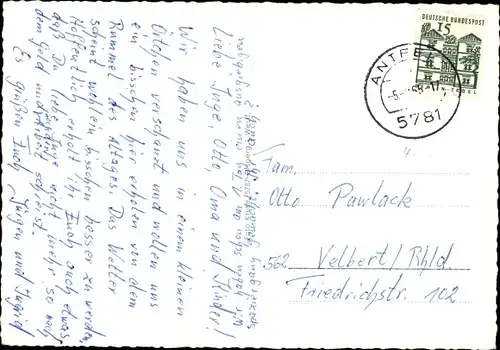 Liebe Inge, Otto, Oma und Kinder!
Wir haben uns in einem kleinen
Örtchen verschanzt und wollen uns
ein bisschen hier erholen von dem
Rummel des Alltages. Das Wetter
scheint wohl ein bisschen besser zu werden.
Hoffentlich erholt Ihr Euch auch etwas
daß Du liebe Inge nicht mehr so nach
dem Geld und Arbeit schreist.
Es grüßen Euch Jürgen und Ingrid
DEUTSCHE BUNDESPOST
15
TEGEL
ANTFELD
5781
4.
Fam.
Otto Pawlack
562 Velbert/Rhld.
Friedrichstr. 102